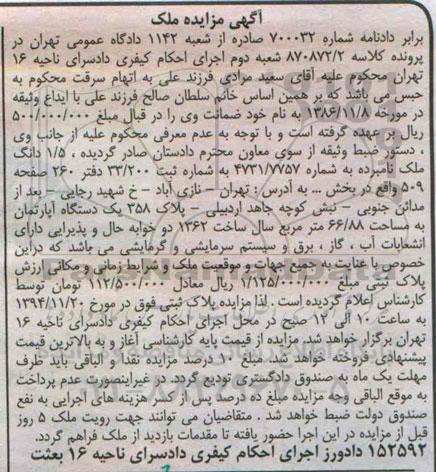 آگهی مزایده ملک
برابر دادنامه شماره ۷۰۰۰۳۲ صادره از شعبه ۱۱۴۲ دادگاه عمومی تهران در
پرونده کلاسه ۸۷۰۸۷۲/۲ شعبه دوم اجرای احکام کیفری دادسرای ناحیه ۱۶
تهران محکوم علیه آقای سعید مرادی فرزند علی به اتهام سرقت محکوم به
حبس می باشد که بر همین اساس خانم سلطان صالح فرزند علی با ایداع وثیقه
در مورخه ۱۳۸۶/۱۱/۸ به نام خود ضمانت وی را در قبال مبلغ ۵۰۰/۰۰۰/۰۰۰
ریال بر عهده گرفته است و با توجه به عدم معرفی محکوم علیه از جانب وی
، دستور ضبط وثیقه از سوی معاون محترم دادستان صادر گردیده ، ۱/۵ دانگ
ملک نامبرده به شماره ۴۷۳۱/۷۷۵۷ به شماره ثبت ۳۳/۲۰۰ دفتر ۲۶۰ صفحه
۵۰۹ واقع در بخش ... به آدرس : تهران – نازی آباد – خ شهید رجایی – بعد از
مدائن جنوبی – نبش کوچه جاهد اردبیلی – پلاک ۳۵۸ یک دستگاه آپارتمان
به مساحت ۶۶/۸۸ متر مربع سال ساخت ۱۳۶۲ دو خوابه حال و پذیرایی دارای
انشعابات آب ، گاز ، برق و سیستم سرمایشی و گرمایشی می باشد که دراین
خصوص با عنایت به جمیع جهات و موقعیت ملک و شرایط زمانی و مکانی ارزش
پلاک ثبتی مبلغ ۱/۱۲۵/۰۰۰/۰۰۰ ریال معادل ۱۱۲/۵۰۰/۰۰۰ تومان توسط
کارشناس اعلام گردیده است . لذا مزایده پلاک ثبتی فوق در مورخ ۱۳۹۴/۱۱/۲۰
به ساعت ۱۰ الی ۱۲ صبح در محل اجرای احکام کیفری دادسرای ناحیه ۱۶
تهران برگزار خواهد شد. مزایده از قیمت پایه کارشناسی آغاز و به بالاترین قیمت
پیشنهادی فروخته خواهد شد. مبلغ ۱۰ درصد مزایده نقدا و الباقی باید ظرف
مهلت یک ماه به صندوق دادگستری تودیع گردد. در غیراینصورت عدم پرداخت
به موقع الباقی وجه مزایده مبلغ ده درصد پس از کسر هزینه های اجرایی به نفع
صندوق دولت ضبط خواهد شد . متقاضیان می توانند جهت رویت ملک ۵ روز
قبل از مزایده در این اجرا حضور یافته تا مقدمات بازدید از ملک فراهم گردد.
۱۵۲۵۹۲ دادورز اجرای احکام کیفری دادسرای ناحیه ۱۶ بعثت